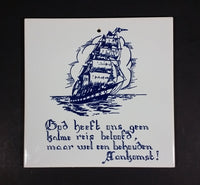 God heeft ons geen
kalme reis beloofd,
maar wel een behouden
Aankomst!